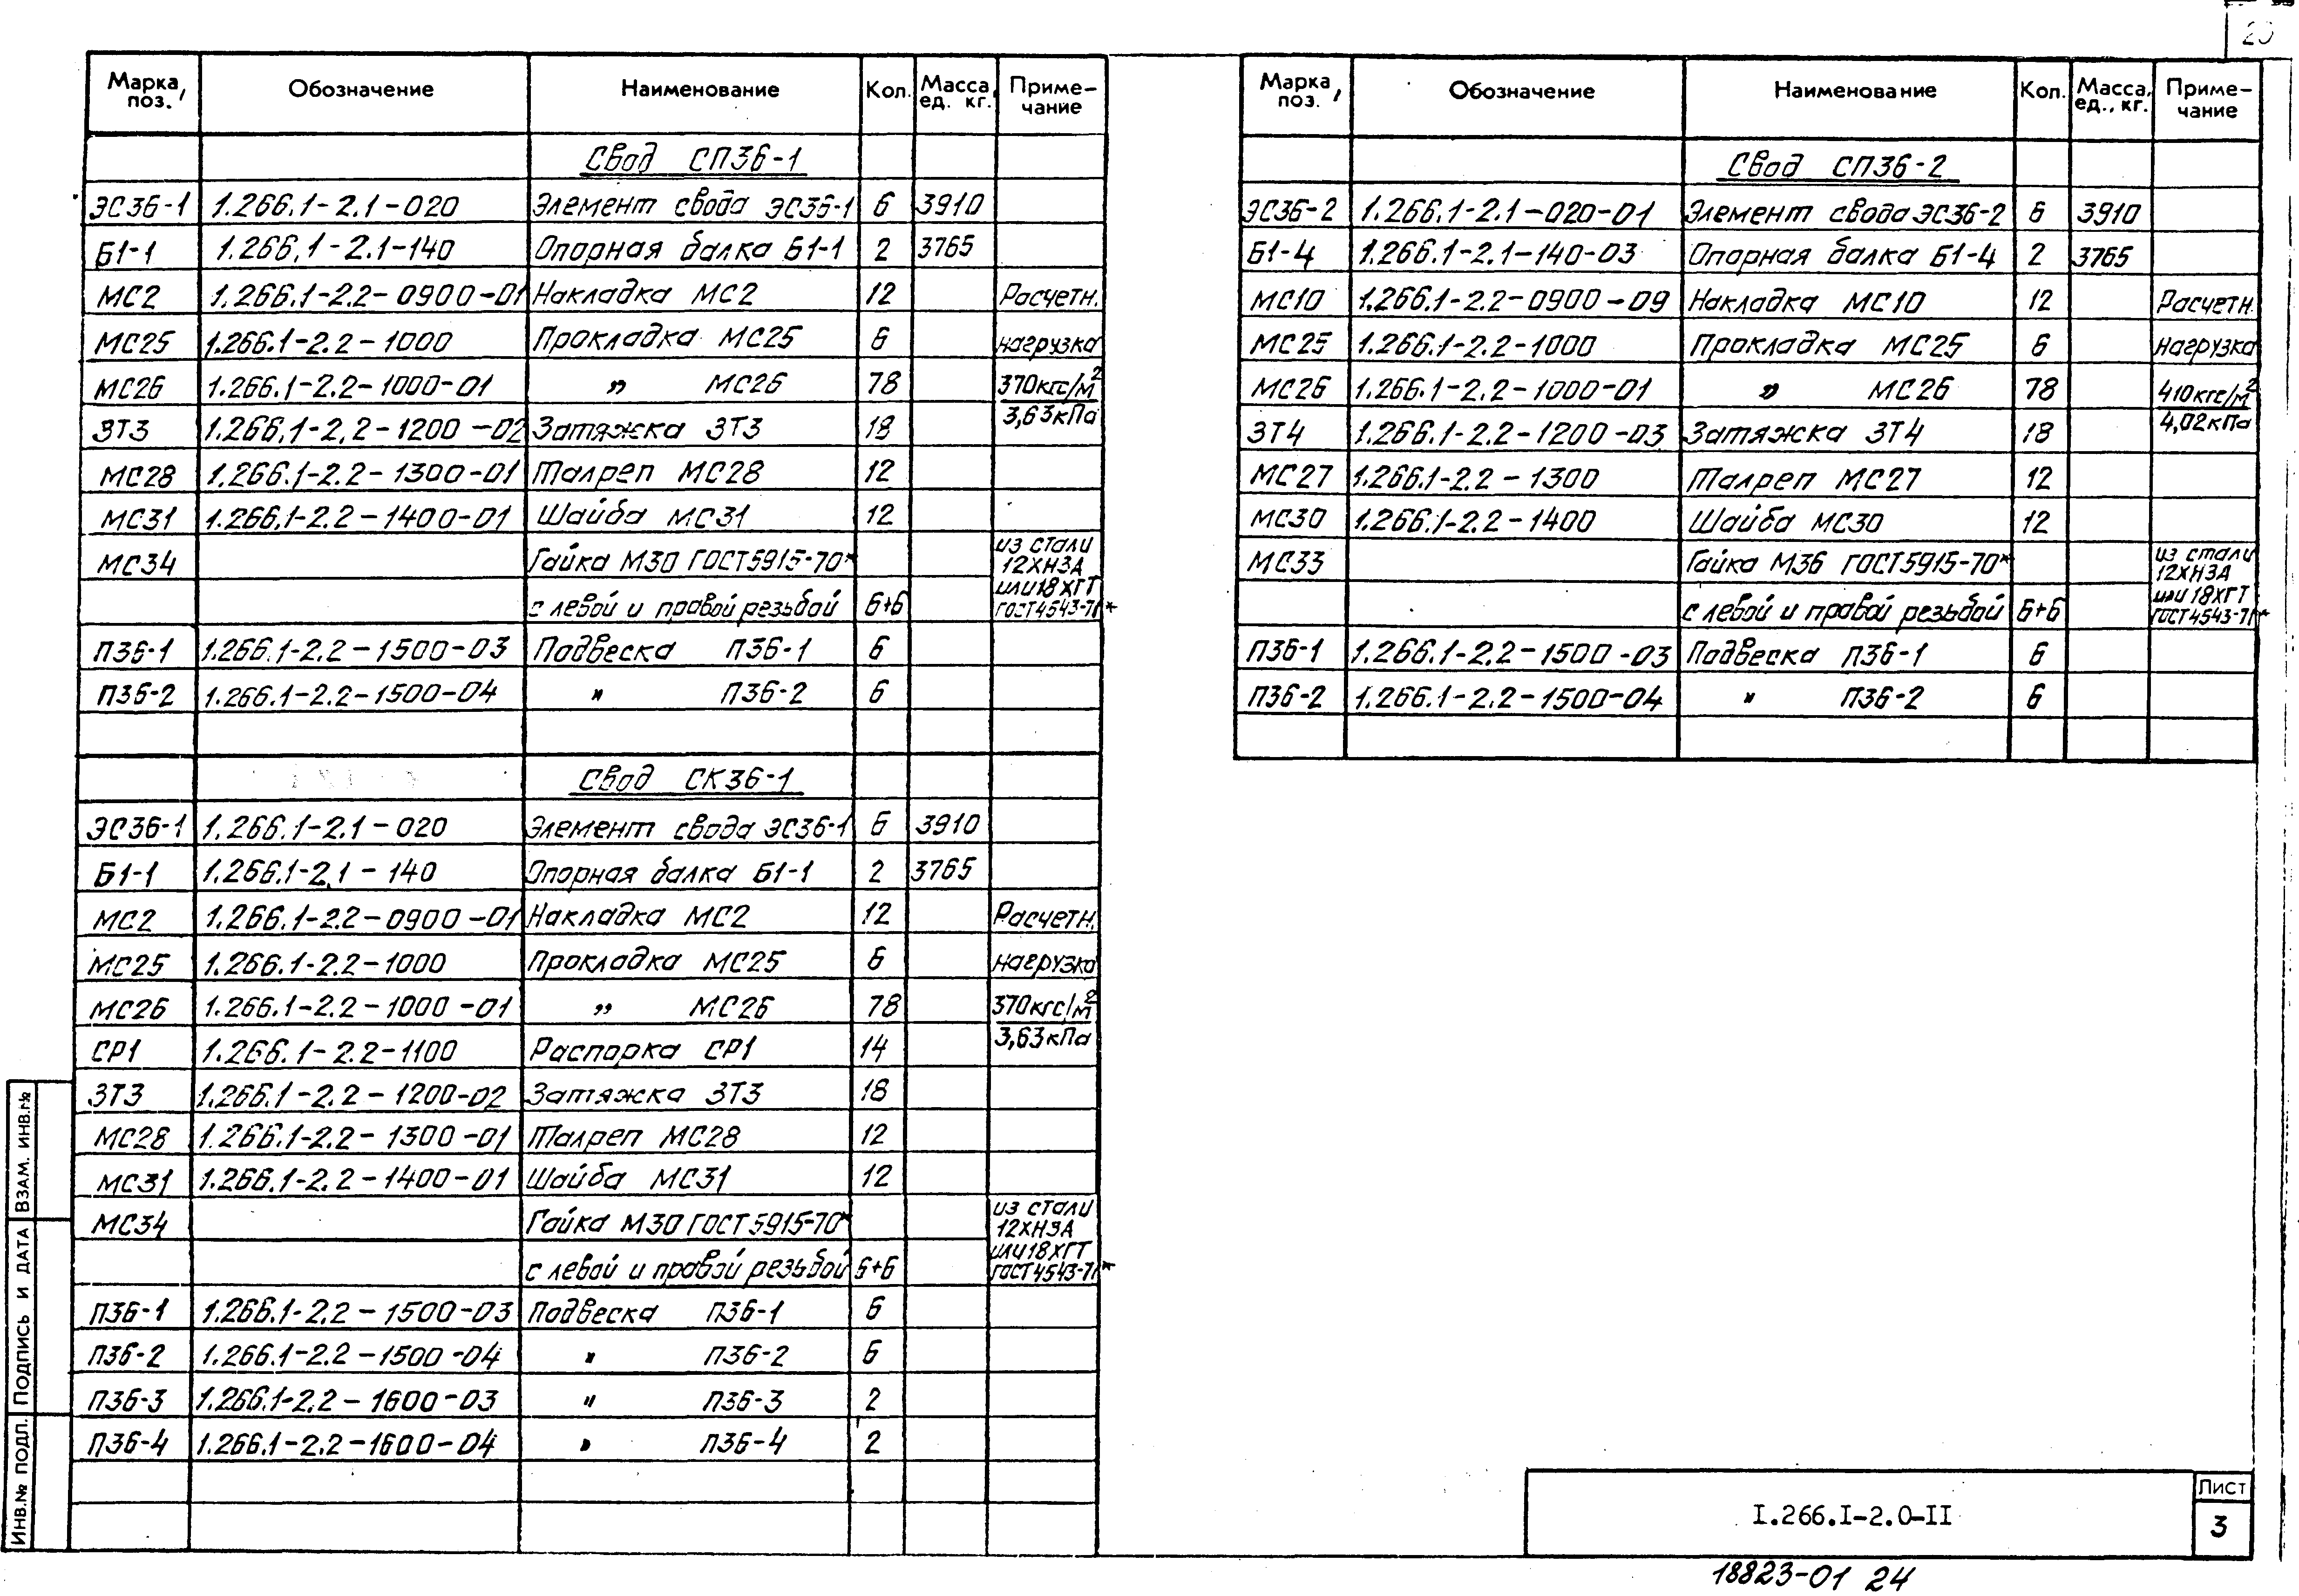 Марка, поз. Обозначение Наименование Кол. Масса, ед. кг. Приме-чание
Свод СП36-1
ЭС36-1 1.266.1-2.1-020 Элемент свода ЭС36-1 6 3910
Б1-1 1.266.1-2.1-140 Опорная балка Б1-1 2 3765
МС2 1.266.1-2.2-0900-01 Накладка МС2 12 Расчетн.
МС25 1.266.1-2.2-1000 Прокладка МС25 6 нагрузка
МС26 1.266.1-2.2-1000-01 „ МС26 78 370кгс/м²
ЗТ3 1.266.1-2.2-1200-02 Затяжка ЗТ3 18 3,63кПа
МС28 1.266.1-2.2-1300-01 Талреп МС28 12
МС31 1.266.1-2.2-1400-01 Шайба МС31 12
МС34 Гайка М30 ГОСТ5915-70* из стали 12ХН3А
с левой и правой резьбой 6+6 или 18ХГТ ГОСТ4543-71*
П36-1 1.266.1-2.2-1500-03 Подвеска П36-1 6
П36-2 1.266.1-2.2-1500-04 „ П36-2 6
Свод СК36-1
ЭС36-1 1.266.1-2.1-020 Элемент свода ЭС36-1 6 3910
Б1-1 1.266.1-2.1-140 Опорная балка Б1-1 2 3765
МС2 1.266.1-2.2-0900-01 Накладка МС2 12 Расчетн.
МС25 1.266.1-2.2-1000 Прокладка МС25 6 нагрузка
МС26 1.266.1-2.2-1000-01 „ МС26 78 370кгс/м²
СР1 1.266.1-2.2-1100 Распорка СР1 14 3,63кПа
ЗТ3 1.266.1-2.2-1200-02 Затяжка ЗТ3 18
МС28 1.266.1-2.2-1300-01 Талреп МС28 12
МС31 1.266.1-2.2-1400-01 Шайба МС31 12
МС34 Гайка М30 ГОСТ5915-70* из стали 12ХН3А
с левой и правой резьбой 6+6 или 18ХГТ ГОСТ4543-71*
П36-1 1.266.1-2.2-1500-03 Подвеска П36-1 6
П36-2 1.266.1-2.2-1500-04 „ П36-2 6
П36-3 1.266.1-2.2-1600-03 „ П36-3 2
П36-4 1.266.1-2.2-1600-04 „ П36-4 2
Марка, поз. Обозначение Наименование Кол. Масса, ед., кг. Приме-чание
Свод СП36-2
ЭС36-2 1.266.1-2.1-020-01 Элемент свода ЭС36-2 6 3910
Б1-4 1.266.1-2.1-140-03 Опорная балка Б1-4 2 3765
МС10 1.266.1-2.2-0900-09 Накладка МС10 12 Расчетн.
МС25 1.266.1-2.2-1000 Прокладка МС25 6 нагрузка
МС26 1.266.1-2.2-1000-01 „ МС26 78 410кгс/м²
ЗТ4 1.266.1-2.2-1200-03 Затяжка ЗТ4 18 4,02кПа
МС27 1.266.1-2.2-1300 Талреп МС27 12
МС30 1.266.1-2.2-1400 Шайба МС30 12
МС33 Гайка М36 ГОСТ5915-70* из стали 12ХН3А
с левой и правой резьбой 6+6 или 18ХГТ ГОСТ4543-71*
П36-1 1.266.1-2.2-1500-03 Подвеска П36-1 6
П36-2 1.266.1-2.2-1500-04 „ П36-2 6
ИНВ.№ ПОДЛ. ПОДПИСЬ И ДАТА ВЗАМ. ИНВ.№
I.266.I-2.0-II
Лист
3
18823-01 24